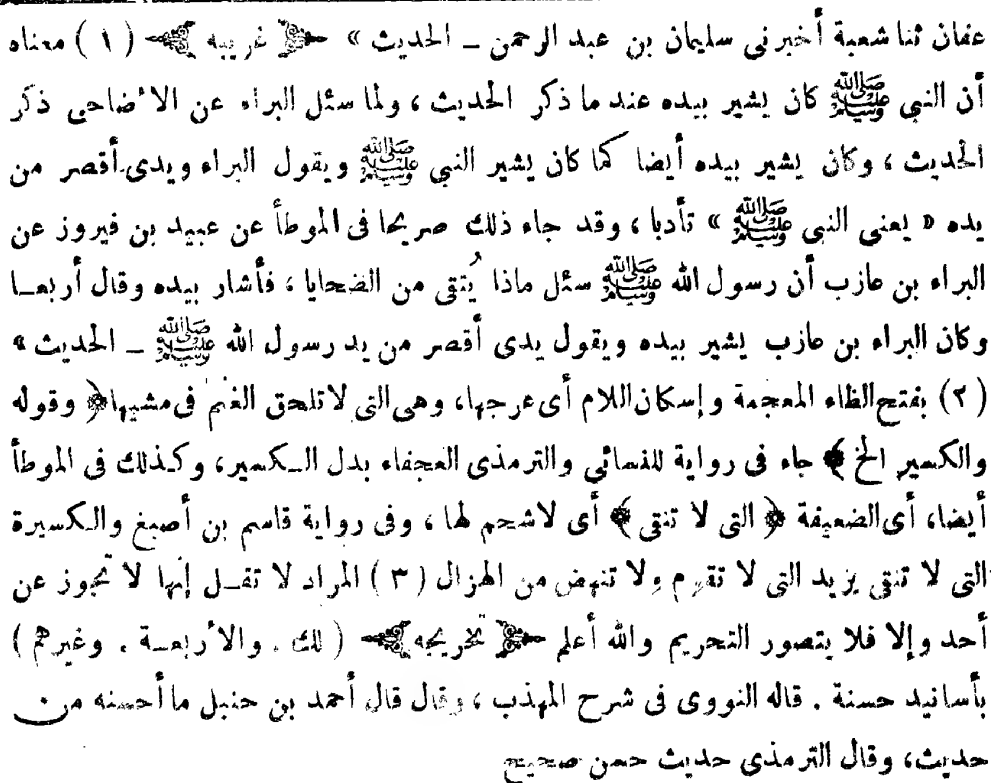 عفان ثنا شعبة أخبرنى سليمان بن عبد الرحمن ــ الحديث » ﴿ غريبه ﴾ ( ١ ) معناه
أن النبى ﷺ كان يشير بيده عند ما ذكر الحديث ، ولما سئل البراء عن الاضاحى ذكر
الحديث ، وكان يشير بيده أيضا كما كان يشير النبى ﷺ ويقول البراء ويدى أقصر من
يده « يعنى النبى ﷺ » تأدبا ، وقد جاء ذلك صريحا فى الموطأ عن عبيد بن فيروز عن
البراء بن عازب أن رسول الله ﷺ سئل ماذا يُتقى من الضحايا ، فأشار بيده وقال أربعا
وكان البراء بن عازب يشير بيده ويقول يدى أقصر من يد رسول الله ﷺ ــ الحديث »
( ٢ ) بفتح الظاء المعجمة وإسكان اللام أى عرجها، وهى التى لا تلحق الغنم فى مشيها ﴿ وقوله
والكسير الخ ﴾ جاء فى رواية للنسائي والترمذى العجفاء بدل الكسير، وكذلك فى الموطأ
أيضا، أى الضعيفة ﴿ التى لا تنقى ﴾ أى لاشحم لها ، وفى رواية قاسم بن أصبغ والكسيرة
التى لا تنقى يريد التى لا تقوم ولا تنهض من الهزال ( ٣ ) المراد لا تقل إنها لا تجوز عن
أحد وإلا فلا يتصور التحريم والله أعلم ﴿ تخريجه ﴾ ( لك . والأربعة . وغيرهم )
بأسانيد حسنة . قاله النووى فى شرح المهذب ، وقال قال أحمد بن حنبل ما أحسنه من
حديث، وقال الترمذى حديث حسن صحيح